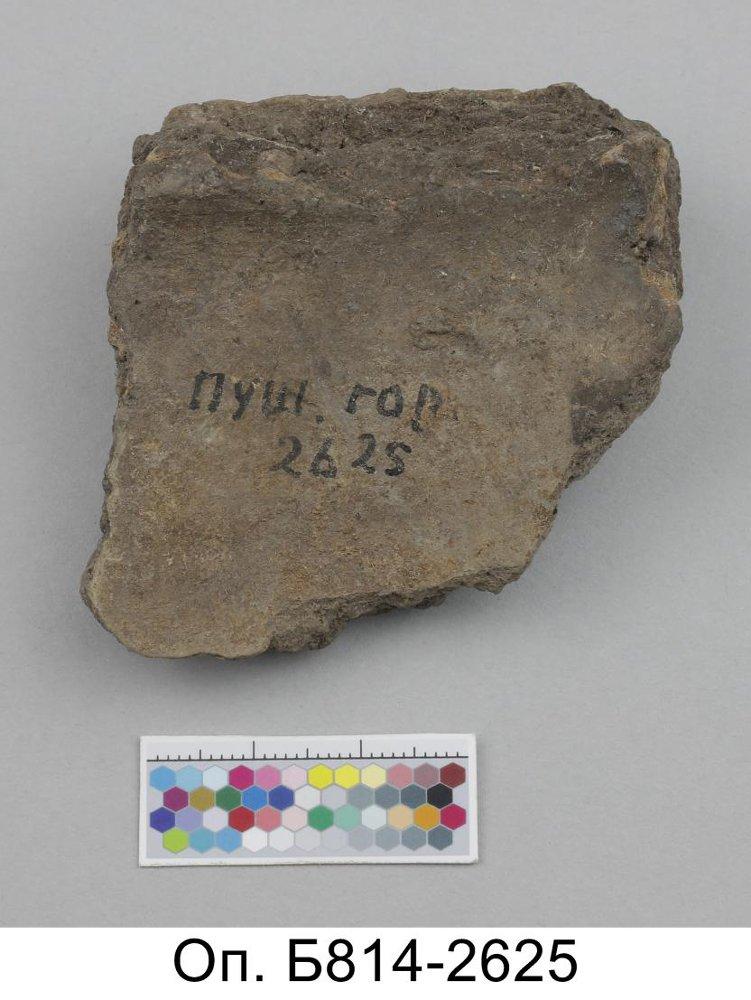 пуш. гор.
2625
Оп. Б814-2625